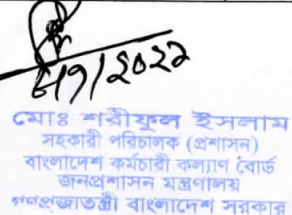 মোঃ শরীফুল ইসলাম
সহকারী পরিচালক (প্রশাসন)
বাংলাদেশ কর্মচারী কল্যাণ বোর্ড
জনপ্রশাসন মন্ত্রণালয়
গণপ্রজাতন্ত্রী বাংলাদেশ সরকার